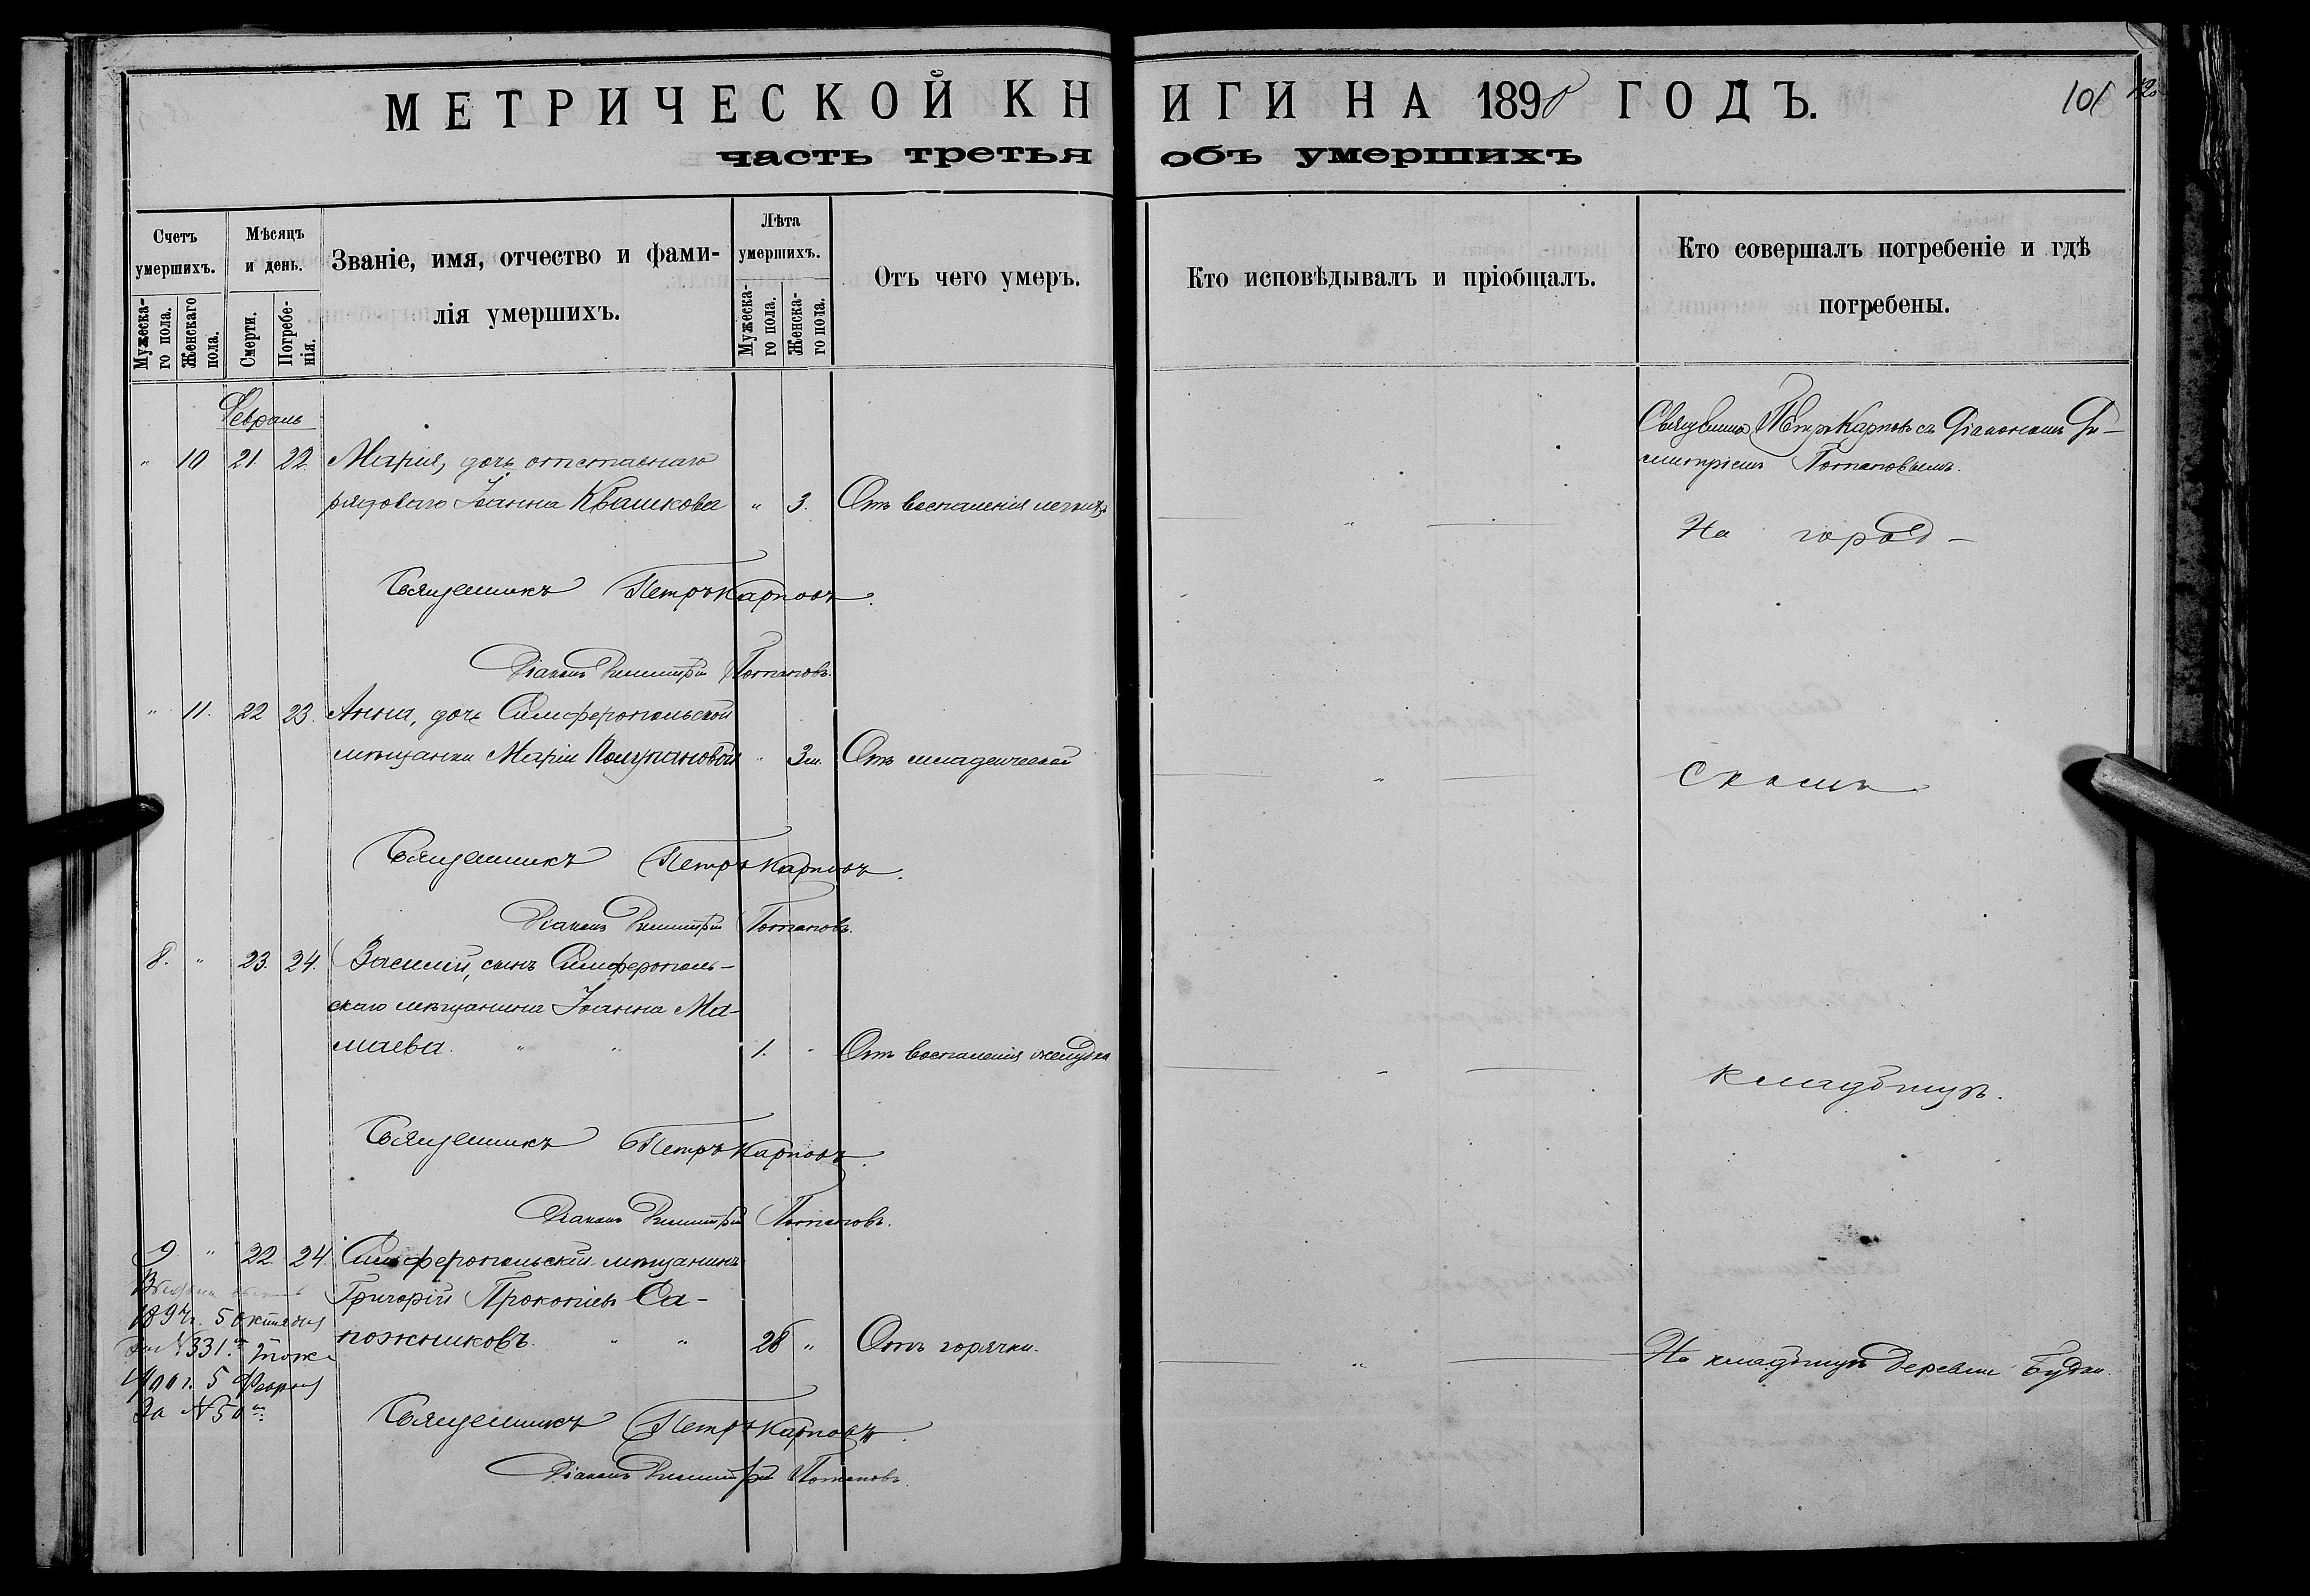 МЕТРИЧЕСКОЙ КНИГИ НА 1890 ГОДЪ.
101
часть третья объ умершихъ
Счетъ умершихъ.
Мужеска-го пола.
Женскаго пола.
Мѣсяцъ и день.
Смерти.
Погребе-нія.
Званіе, имя, отчество и фами-
лія умершихъ.
Лѣта умершихъ.
Мужеска-го пола.
Женска-го пола.
Отъ чего умеръ.
Кто исповѣдывалъ и пріобщалъ.
Кто совершалъ погребеніе и гдѣ
погребены.
Февраль
" 10 21. 22. Марія, дочь отставнаго
рядоваго Іоанна Квашкова " 3. Отъ воспаленія легкихъ
Священникъ Петръ Карповъ съ Діакономъ Ди-
митріемъ Потаповымъ.
На город-
Священникъ Петръ Карповъ.
Діаконъ Димитрій Потаповъ.
" 11. 22 23. Анна, дочь Симферопольской
мѣщанки Маріи Полупановой " 3м. Отъ младенческой
скомъ
Священникъ Петръ Карповъ.
Діаконъ Димитрій Потаповъ.
8. " 23. 24. Василій, сынъ Симферополь-
скаго мѣщанина Іоанна Ма-
маева. " " 1. " Отъ воспаленія желудка
кладбищѣ.
Священникъ Петръ Карповъ.
Діаконъ Димитрій Потаповъ.
9 " 22. 24. Симферопольскій мѣщанинъ
Григорій Прокопіевъ Са-
пожниковъ. " " 28 " Отъ горячки.
На кладбищѣ деревни
1897г. 5 октября
за №331.
5 Февраля
За №50
Священникъ Петръ Карповъ.
Діаконъ Димитрій Потаповъ.